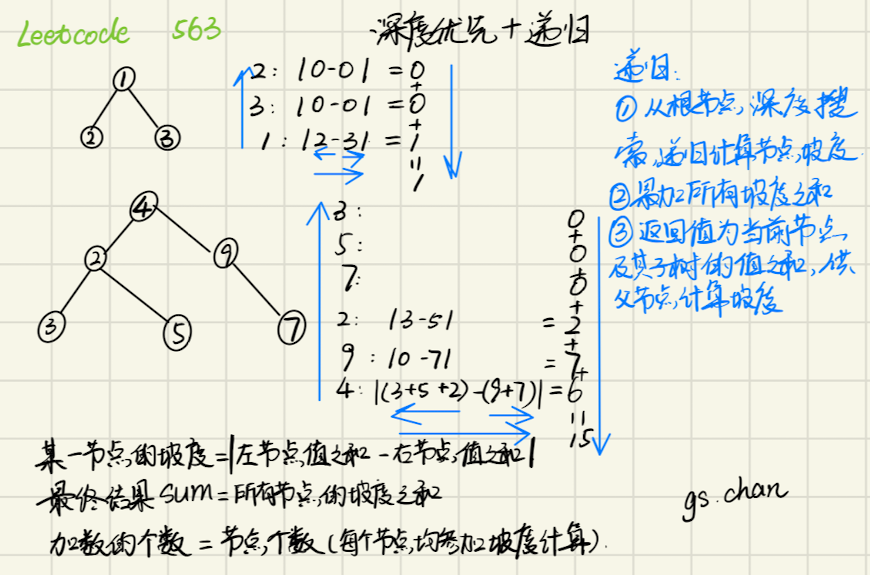 Leetcode 563
深度优先+递归
1
2 3
2: |0-0| = 0
+
3: |0-0| = 0
+
1: |2-3| = 1
=
1
4
2 9
3 5 7
3: 0
+
5: 0
+
7: 0
+
2: |3-5| = 2
+
9: |0-7| = 7
+
4: |(3+5+2)-(9+7)| = 6
=
15
递归:
① 从根节点,深度搜
索,递归计算节点坡度
②累加所有坡度之和
③返回值为当前节点
及其子树的值之和,供
父节点计算坡度
某一节点的坡度=|左节点值之和-右节点值之和|
最终结果SUM=所有节点的坡度之和
加数的个数=节点个数(每个节点均参加坡度计算).
gs.chan